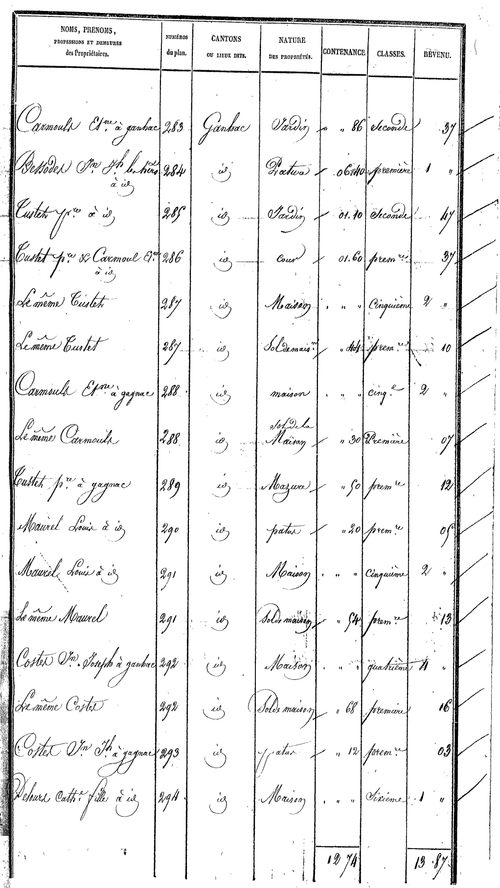 NOMS, PRÉNOMS, PROFESSIONS ET DEMEURES des Propriétaires. | NUMÉROS du plan. | CANTONS OU LIEUX DITS. | NATURE DES PROPRIÉTÉS. | CONTENANCE. | CLASSES. | REVENU.
Carmouls Etne à ganhac 283 Ganhac Jardin " " 86 Seconde 37
Bessodes Jn Jh les hérs à id 284 id Pature 06.40 première 1 "
Tustet pre à id 285 id Jardin 01.10 Seconde 47
Tustet pre & Carmoul Etne à id 286 id cour 01.60 premre 37
Le même Tustet 287 id Maison " " " Cinquième 2 "
Le même Tustet 287 id Sol de maison " 44 premre 10
Carmouls Etne à gagnac 288 id maison " " " cinqe 2 "
Le même Carmouls 288 id Sol de la Maison " 30 Première 07
Tustet pre à gagnac 289 id Mazure " 50 premre 12
Maurel Louis à id 290 id patus " 20 premre 05
Maurel Louis à id 291 id Maison " " " Cinquième 2 "
Le même Maurel 291 id Sol de maison " 54 premre 13
Costes Jn Joseph à ganhac 292 id Maison " " " quatrième 4 "
Le même Costes 292 id Sol de maison " 68 première 16
Costes Jn Jh à gagnac 293 id patus " 12 premre 03
cathe fille à id 294 id Maison " " " Sixième 1 "
12 74 13 87